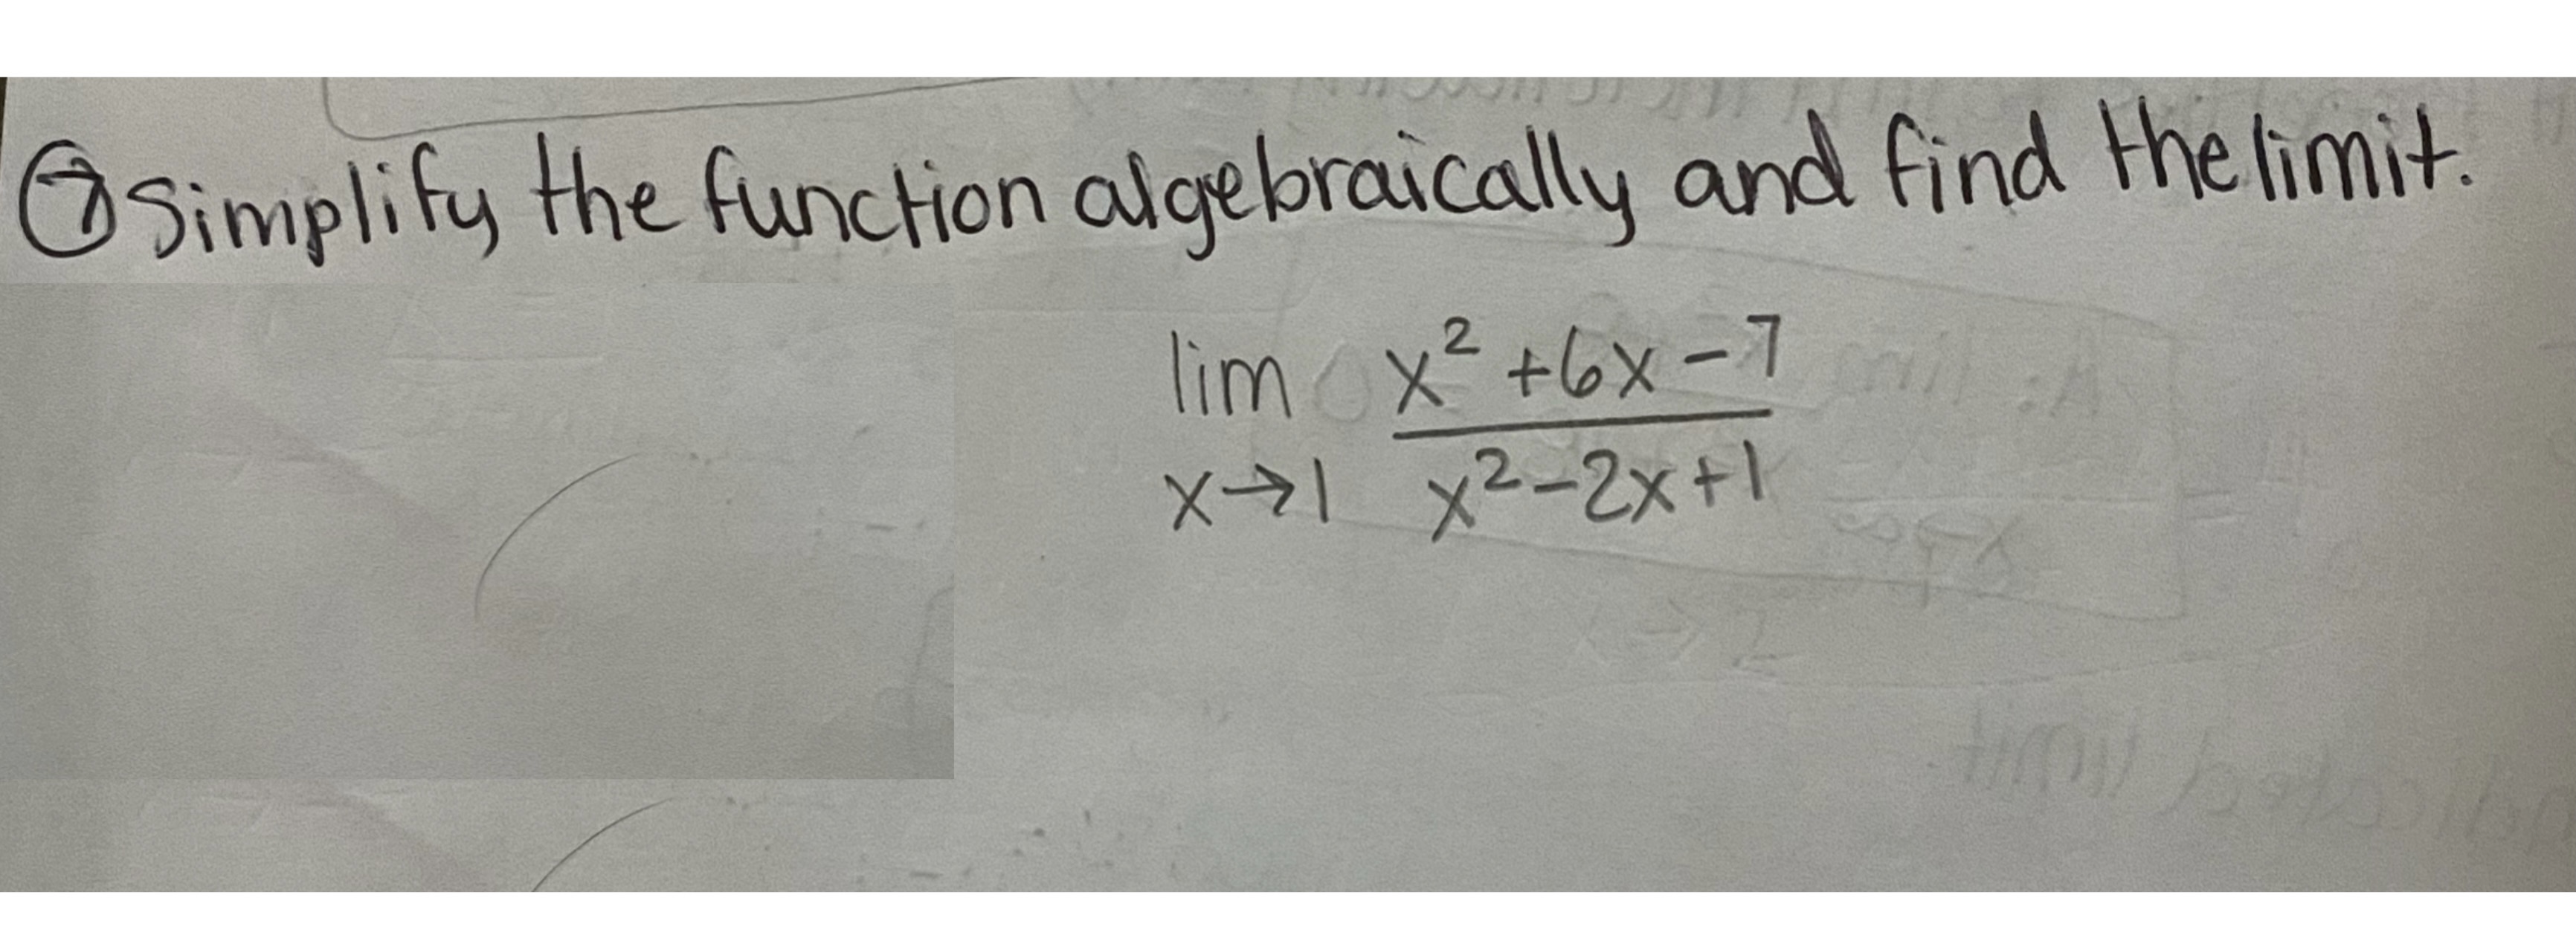 ⑦ Simplify the function algebraically and find the limit.
lim x² + 6x - 7
x→1 x² - 2x + 1